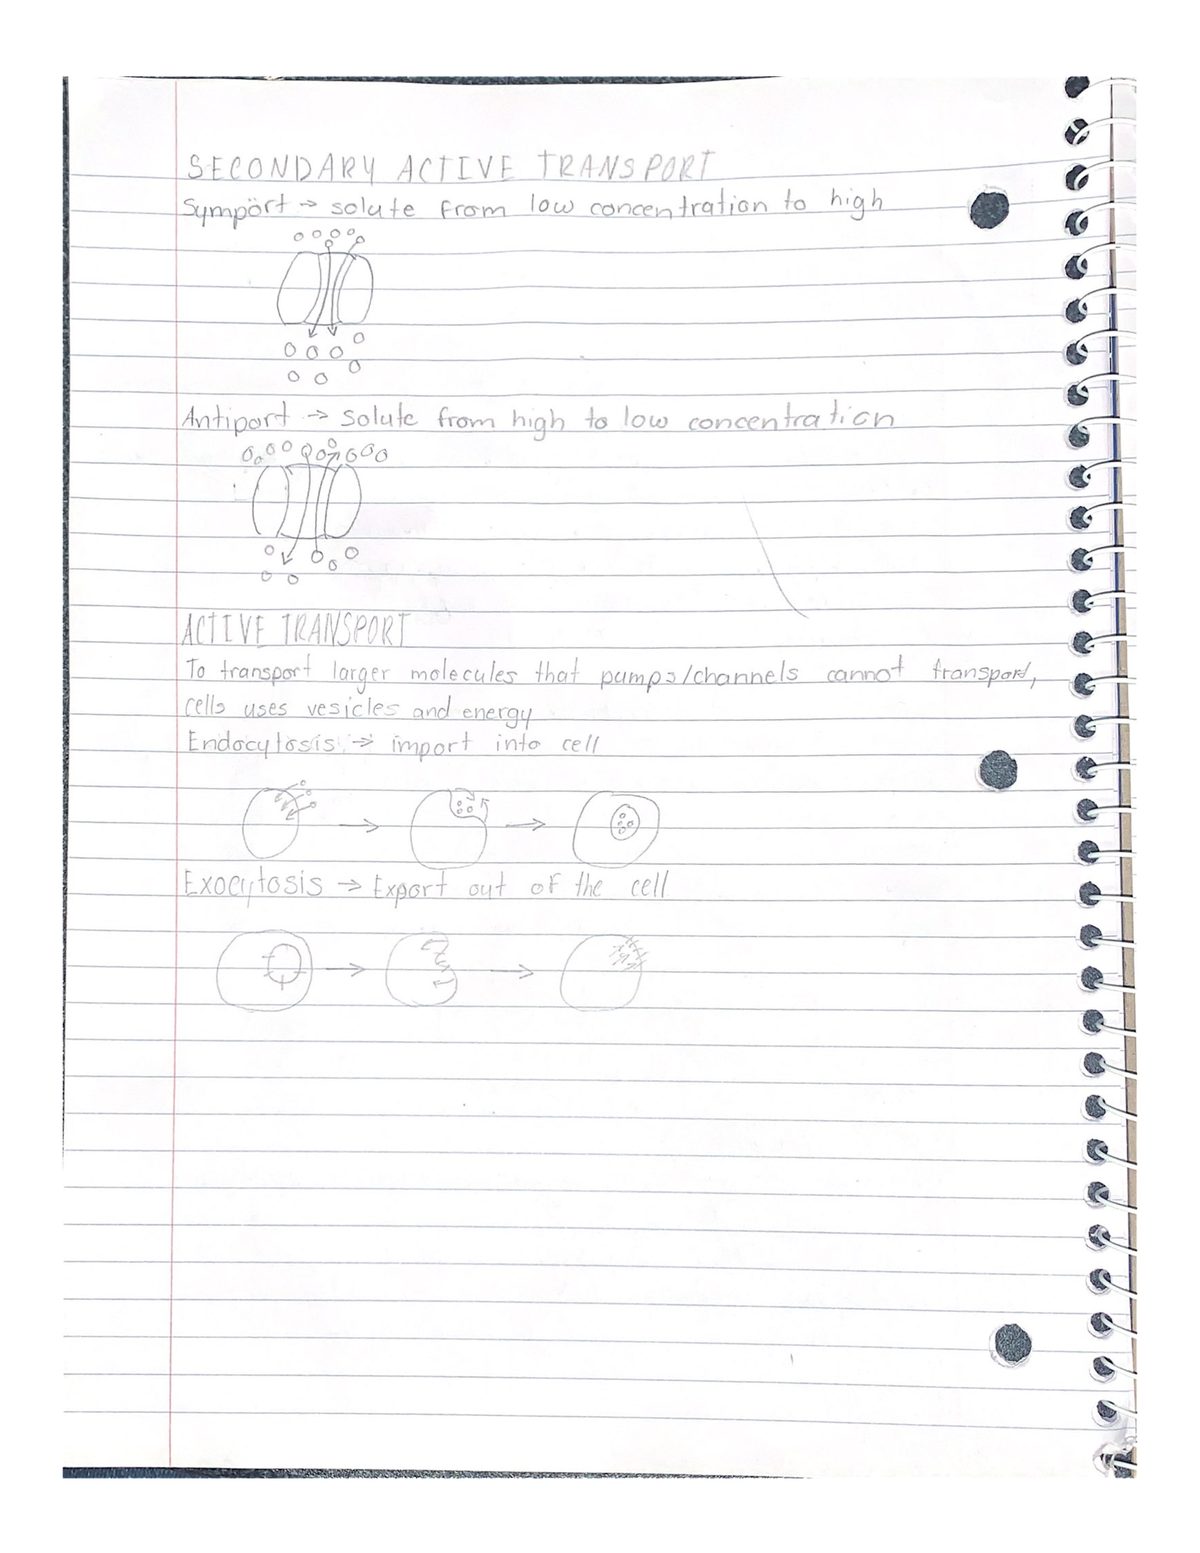 SECONDARY ACTIVE TRANSPORT
Symport → solute from low concentration to high
Antiport → solute from high to low concentration
ACTIVE TRANSPORT
To transport larger molecules that pumps/channels cannot transport,
cells uses vesicles and energy
Endocytosis → import into cell
Exocytosis → Export out of the cell